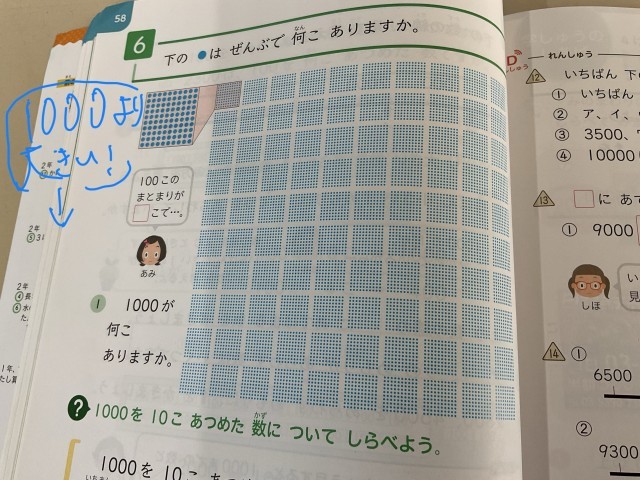 58
6
下の ●は ぜんぶで 何こ ありますか。
なん
1000より
大きい!
100この
まとまりが
□こで…。
あみ
1 1000が
何こ
ありますか。
? 1000を 10こ あつめた 数に ついて しらべよう。
かず
1000を 10こ
れんしゅう
12 いちばん 下
① いちばん
② ア、イ、
③ 3500、
④ 10000
13 □に あて
① 9000
しほ
14 ①
6500
②
9300
2年
2年
2年